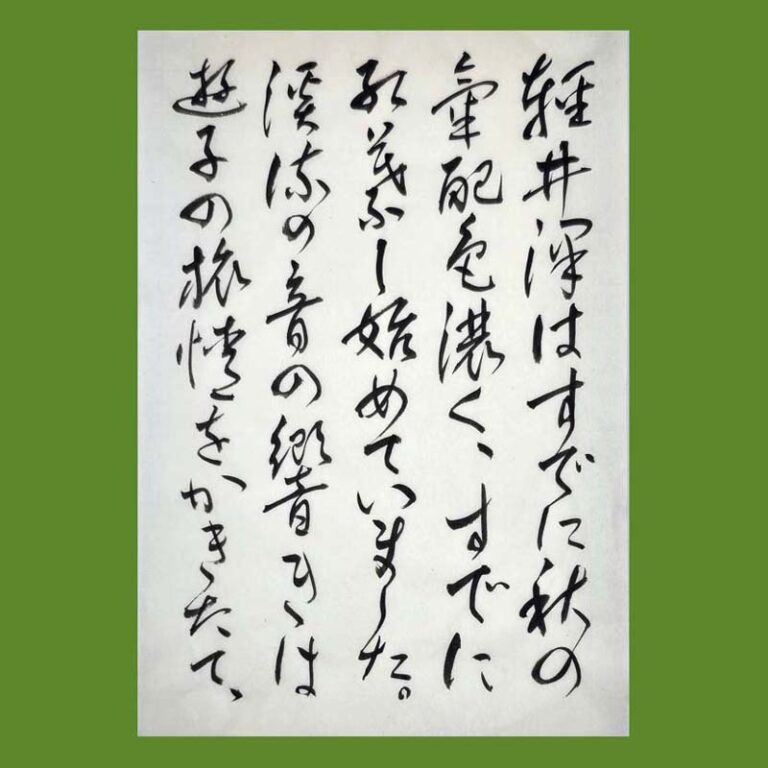 輕井澤はすでに秋の
氣配色濃く、すでに
紅葉し始めていました。
渓流の音の響きは
遊子の旅情をかきたて、